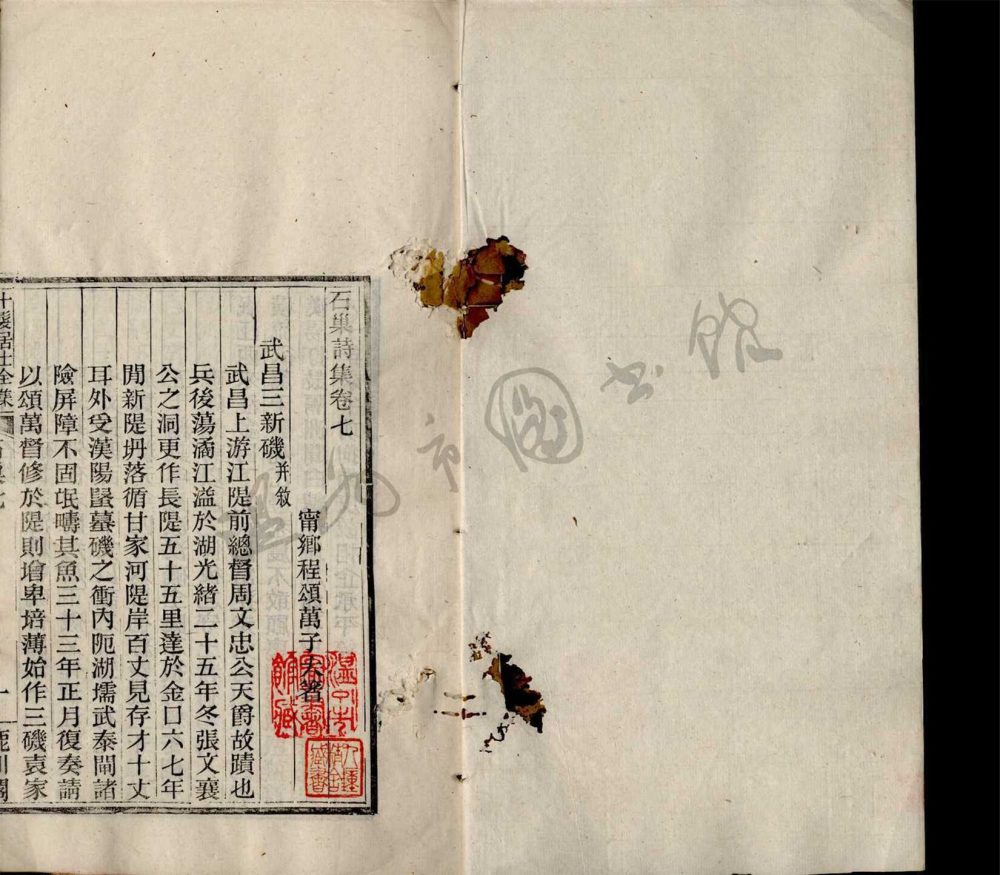 石巢詩集卷七
甯鄉程頌萬子大著
武昌三新磯并敘
武昌上游江隄前總督周文忠公天爵故蹟也
兵後蕩潏江溢於湖光緒二十五年冬張文襄
公之洞更作長隄五十五里達於金口六七年
閒新隄坍落循甘家河隄岸百丈見存才十丈
耳外受漢陽蟇磯之衝內阨湖壖武泰閘諸
險屏障不固氓疇其魚三十三年正月復奏請
以頌萬督修於隄則增卑培薄始作三磯袁家
十髮居士全集
溫州市圖書館